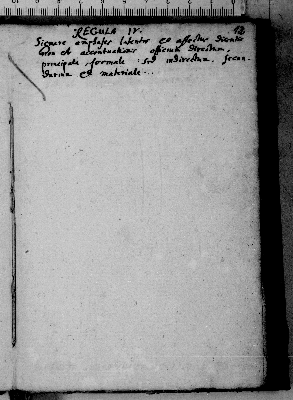 REGULA IV. 12
Signare emphases latentes et affectus dicentis
est accentuationis officium directum,
principale, formale: sed indirectum, secun-
darium et materiale...